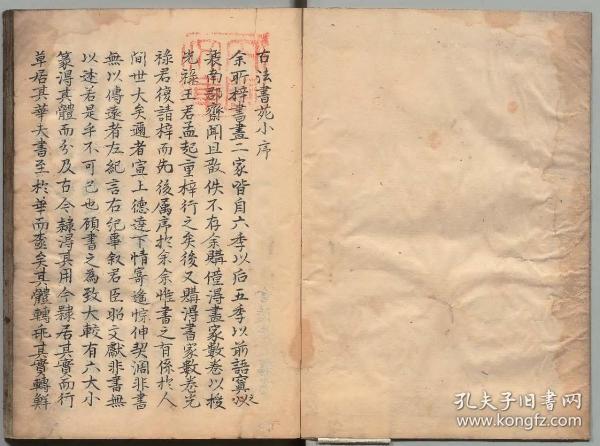 古法書苑小序
余所梓書畫二家皆自六季以后五季以前語寘以
襄南郡齋聞且散佚不存余購僅得畫家數卷以授
光祿王君孟起重梓行之矣後又購得書家數卷光
祿君復請梓而先後属序於余余惟書之有係於人
間世大矣邇者宣上德達下情寄遙悰伸契濶非書
無以傳遠者左紀言右紀事叙君臣昭文獻非書無
以述若是乎不可已也顧書之為致大較有六大小
篆得其體而分及古今隸得其用今隸居其實而行
草居其華大書至於華而盡矣其體轉乖其實轉鮮
孔夫子旧书网
www.kongfz.com